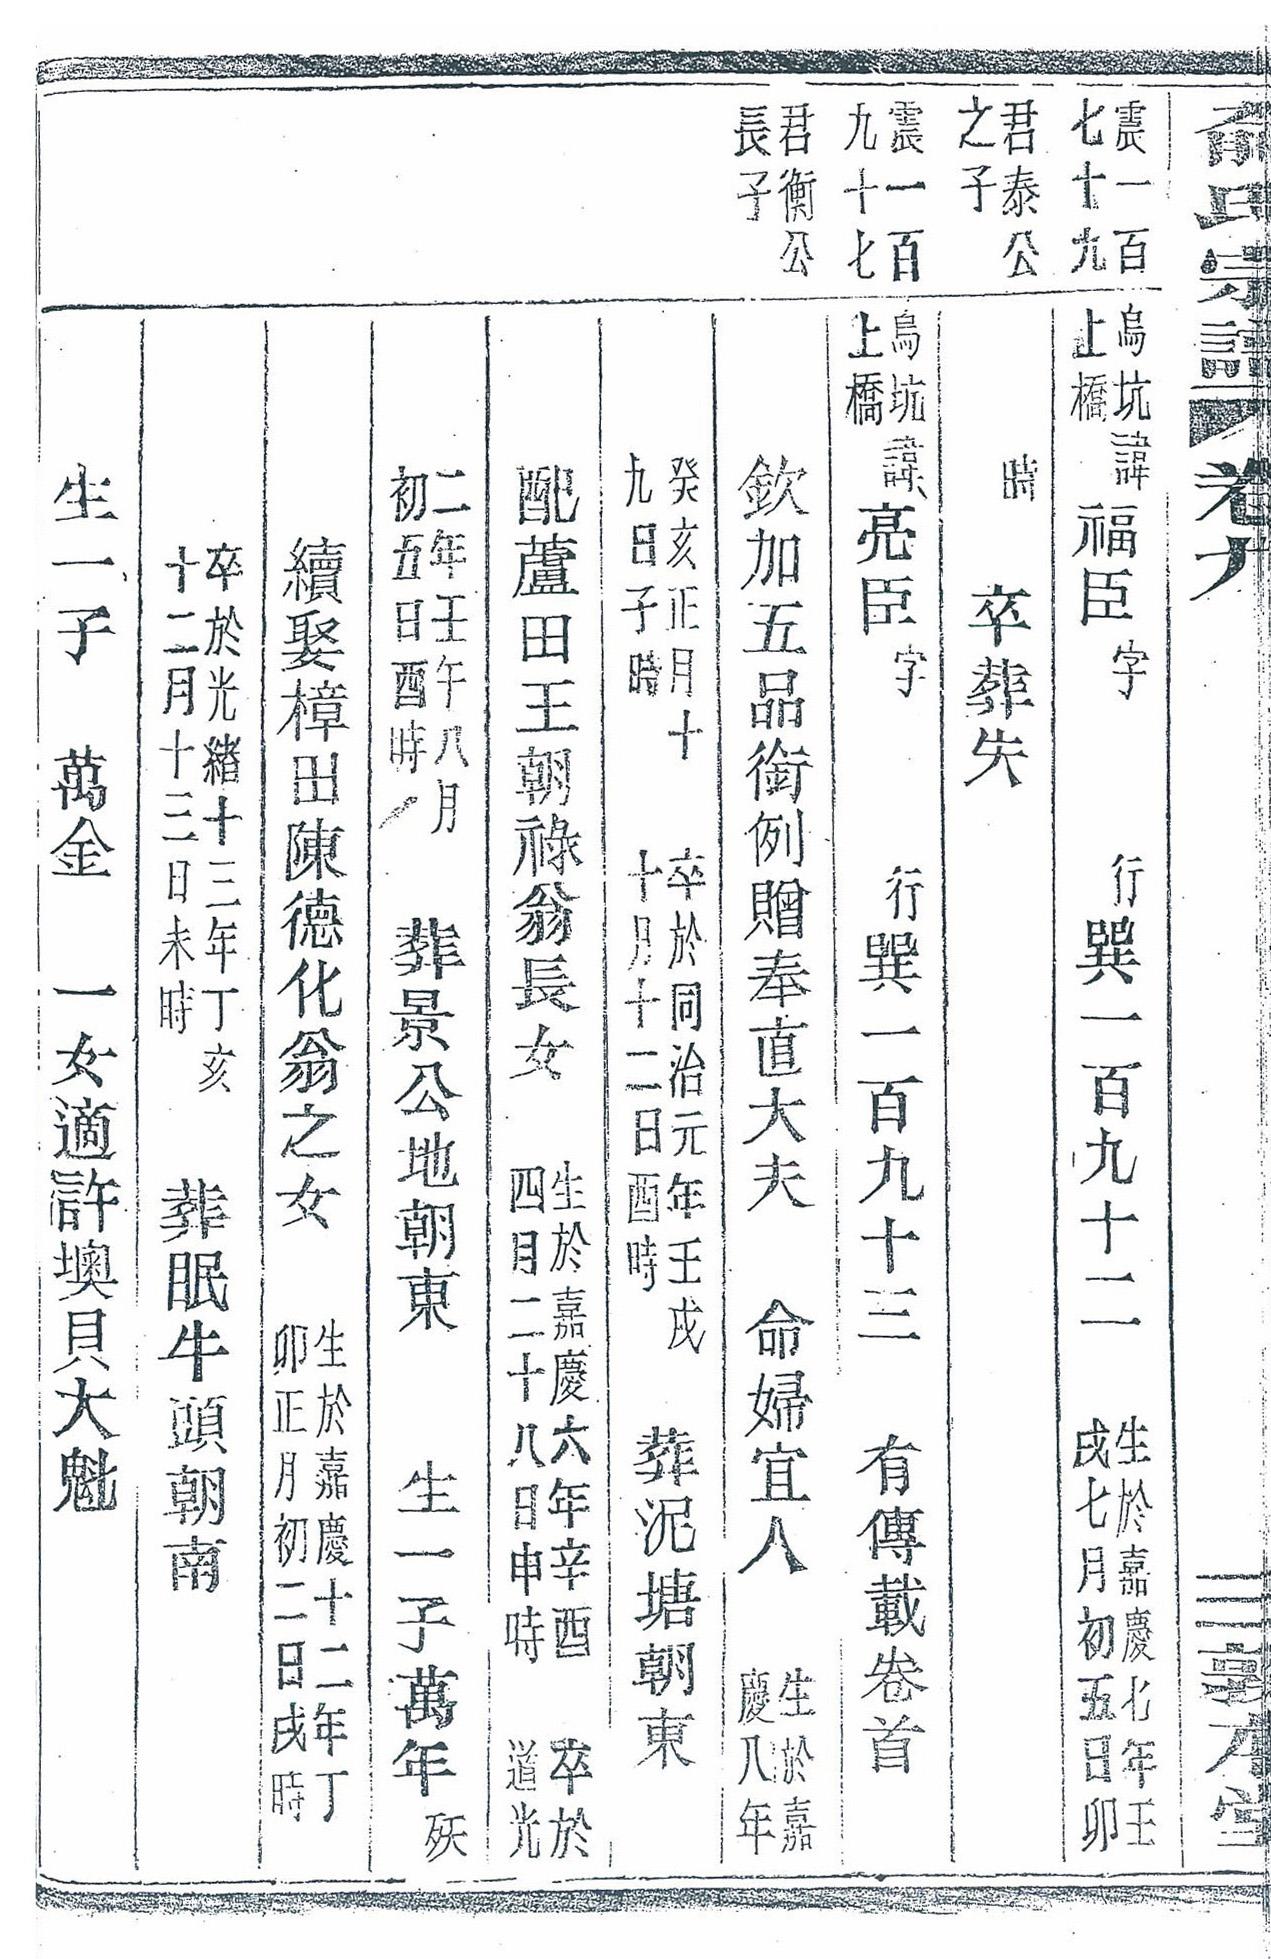 俞氏宗譜 卷九 敦本堂
震一百
七十九
君泰公
之子
震一百
九十七
君衡公
長子
烏坑
上橋
諱福臣 字 行巽一百九十二
生於嘉慶七年壬
戌七月初五日卯
時 卒葬失
烏坑
上橋
諱亮臣 字 行巽一百九十三 有傳載卷首
欽加五品銜例贈奉直大夫 命婦宜人
生於嘉
慶八年
癸亥正月十
九日子時
卒於同治元年壬戌
十月十二日酉時
葬泥塘朝東
配蘆田王朝祿翁長女
生於嘉慶六年辛酉
四月二十八日申時
卒於
道光
二年壬午八月
初五日酉時
葬景公地朝東 生一子萬年 殀
續娶樟田陳德化翁之女
生於嘉慶十二年丁
卯正月初二日戌時
卒於光緒十三年丁亥
十二月十三日未時
葬眠牛頭朝南
生一子 萬金 一女適許墺貝大魁